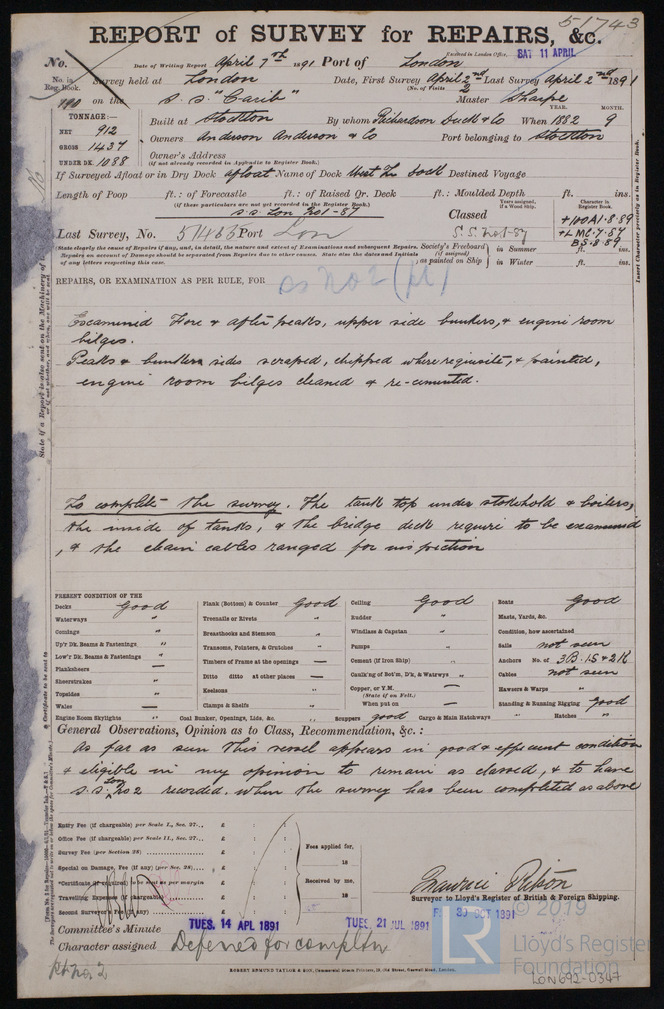 51743
REPORT of SURVEY for REPAIRS, &c.
Received in London Office, SAT 11 APRIL
No. Date of Writing Report April 7th 1891 Port of London
No. in Reg. Book. Survey held at London Date, First Survey April 2nd Last Survey April 2nd 1891
(No. of Visits 2)
on the S.S. "Carib" Master Sharpe
TONNAGE:— YEAR. MONTH.
Built at Stockton By whom Richardson Duck & Co When 1882 9
NET 912
GROSS 1437 Owners Anderson Anderson & Co Port belonging to Stockton
UNDER DK. 1088 Owner's Address
(if not already recorded in Appendix to Register Book.)
If Surveyed Afloat or in Dry Dock afloat Name of Dock West In dock Destined Voyage
Length of Poop ft.: of Forecastle ft.: of Raised Qr. Deck ft.: Moulded Depth ft. ins.
(if these particulars are not yet recorded in the Register Book.)
Years assigned, if a Wood Ship.
Character in Register Book.
S.S. Lon No1-87 Classed +100A1.8.89
Last Survey, No. 51463 Port Lon S.S. No1-87 +LMC.7.87
BS.8.89
(State clearly the cause of Repairs if any, and, in detail, the nature and extent of Examinations and subsequent Repairs. Society's Freeboard in Summer ft. ins.
Repairs on account of Damage should be separated from Repairs due to other causes. State also the dates and Initials (if assigned)
of any letters respecting this case.) as painted on Ship in Winter ft. ins.
REPAIRS, OR EXAMINATION AS PER RULE, FOR SS No 2 (pt)
Examined Fore & after peaks, upper side bunkers, & engine room
bilges.
Peaks & bunkers sides scraped, chipped where requisite, & painted,
engine room bilges cleaned & re-cemented.
To complete the survey. The tank top under stokehold & boilers,
the inside of tanks, & the bridge deck require to be examined
, & the chain cables ranged for inspection
PRESENT CONDITION OF THE
Decks Good Plank (Bottom) & Counter Good Ceiling Good Boats Good
Waterways " Treenails or Rivets " Rudder " Masts, Yards, &c. "
Comings " Breasthooks and Stemson " Windlass & Capstan " Condition, how ascertained
Up'r Dk. Beams & Fastenings " Transoms, Pointers, & Crutches " Pumps " Sails not seen
Low'r Dk. Beams & Fastenings " Timbers of Frame at the openings — Cement (If Iron Ship) " Anchors No. of 3B.1S & 2K
Planksheers — Ditto ditto at other places — Caulk'ng of Bot'm, D'k, & Watrwys " Cables not seen
Sheerstrakes " Keelsons " Copper, or Y.M. — Hawsers & Warps "
(State if on Felt.)
Topsides " Clamps & Shelfs " When put on — Standing & Running Rigging good
Wales —
Engine Room Skylights " Coal Bunker, Openings, Lids, &c. " Scuppers good Cargo & Main Hatchways " Hatches "
General Observations, Opinion as to Class, Recommendation, &c. :
As far as seen this vessel appears in good & efficient condition
& eligible in my opinion to remain as classed, & to have
S.S. Lon No 2 recorded. when the survey has been completed as above
Entry Fee (if chargeable) per Scale I., Sec. 27... £ : :
Office Fee (if chargeable) per Scale II., Sec. 27... £ : : Fees applied for,
Survey Fee (per Section 28) £ : : 18
Special on Damage, Fee (if any) (per Sec. 28).. £ : :
*Certificate (if required) to be sent as per margin £ : : Received by me,
Travelling Expenses (if chargeable) £ : : 18
Second Surveyor's Fee (if any) £ : :
Surveyor to Lloyd's Register of British & Foreign Shipping.
TUES. 14 APL 1891 TUES. 21 JUL 1891 30 OCT 1891
Committee's Minute
Character assigned Deferred for compltn
pt No 2
ROBERT EDMUND TAYLOR & SON, Commercial Steam Printers, 19, Old Street, Goswell Road, London.
© 2019
LR
Lloyd's Register
Foundation
LON692-0347